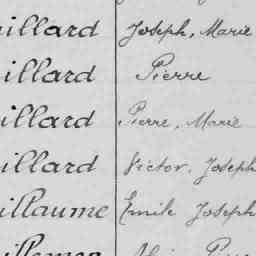 illard Joseph, Marie
illard Pierre
illard Pierre, Marie
illard Victor, Joseph
illaume Emile Joseph